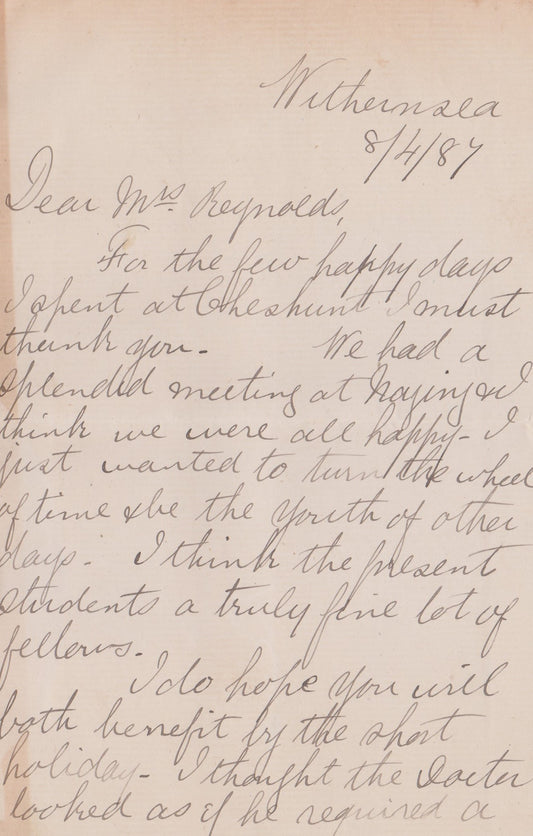 Withernsea
8/4/87
Dear Mrs. Reynolds,
For the few happy days
I spent at Cheshunt I must
thank you - We had a
splendid meeting at Nazing & I
think we were all happy - I
just wanted to turn the wheel
of time & be the youth of other
days. I think the present
students a truly fine lot of
fellows.
I do hope you will
both benefit by the short
holiday - I thought the Doctor
looked as if he required a